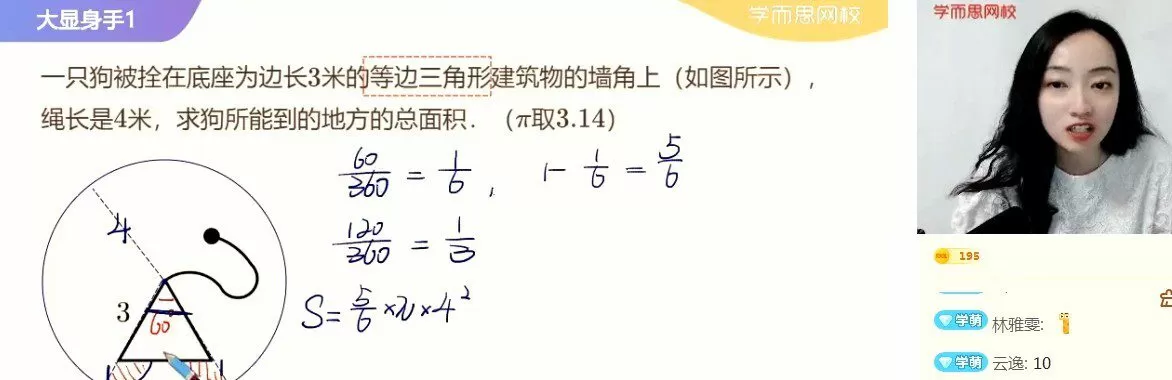 大显身手1
学而思网校
学而思网校
一只狗被拴在底座为边长3米的等边三角形建筑物的墙角上（如图所示），
绳长是4米，求狗所能到的地方的总面积．（π取3.14）
60/360 = 1/6 , 1- 1/6 = 5/6
120/360 = 1/3
S= 5/6 ×π×4²
4
3
60
195
学萌 林雅雯:
学萌 云逸: 10